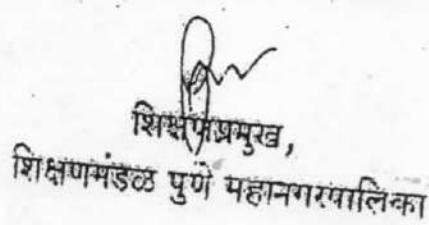 शिक्षणप्रमुख,
शिक्षणमंडळ पुणे महानगरपालिका